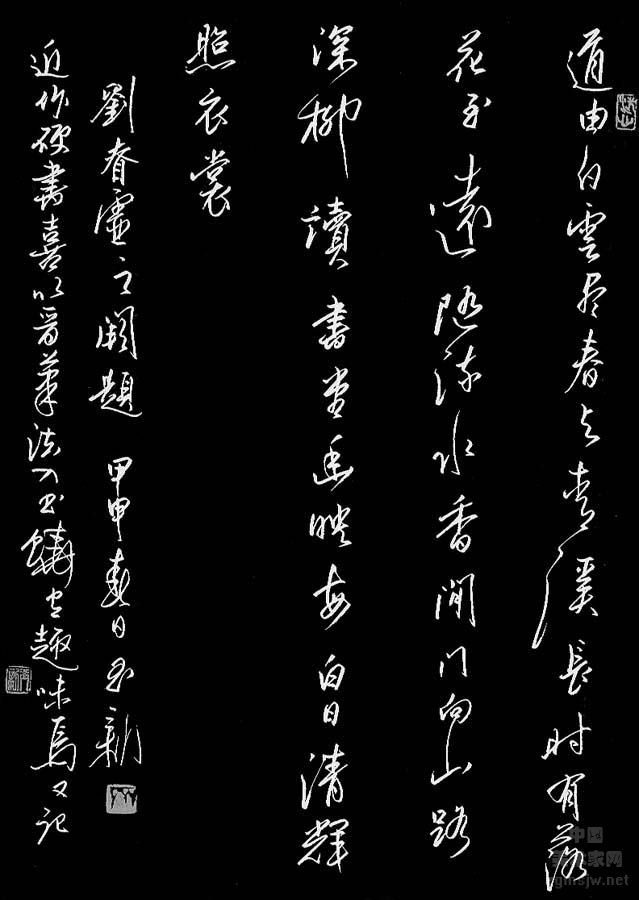 道由白雲盡春與青溪長時有落
花至遠隨流水香閒門向山路
深柳讀書堂幽映每白日清輝
照衣裳
劉眘虛之闕題 甲申春日玉新
近作硬書喜以晉筆法入書饒有趣味焉又記
中国
美术家网
zgmsjw.net